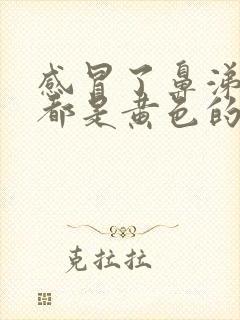 感冒了鼻涕
都是黄色的
克拉拉